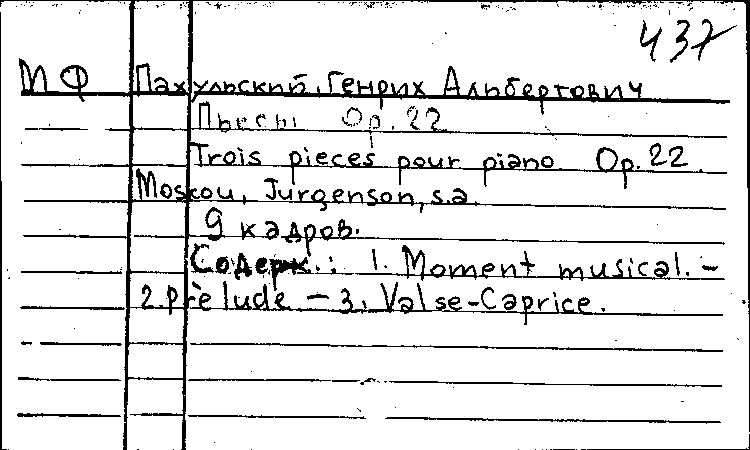 437
МФ Пахульский, Генрих Альбертович
Пьесы Op. 22
Trois pieces pour piano Op. 22.
Moscou, Jurgenson, s.a.
9 кадров.
Содерж.: 1. Moment musical. –
2. Prèlude – 3. Valse-Caprice.